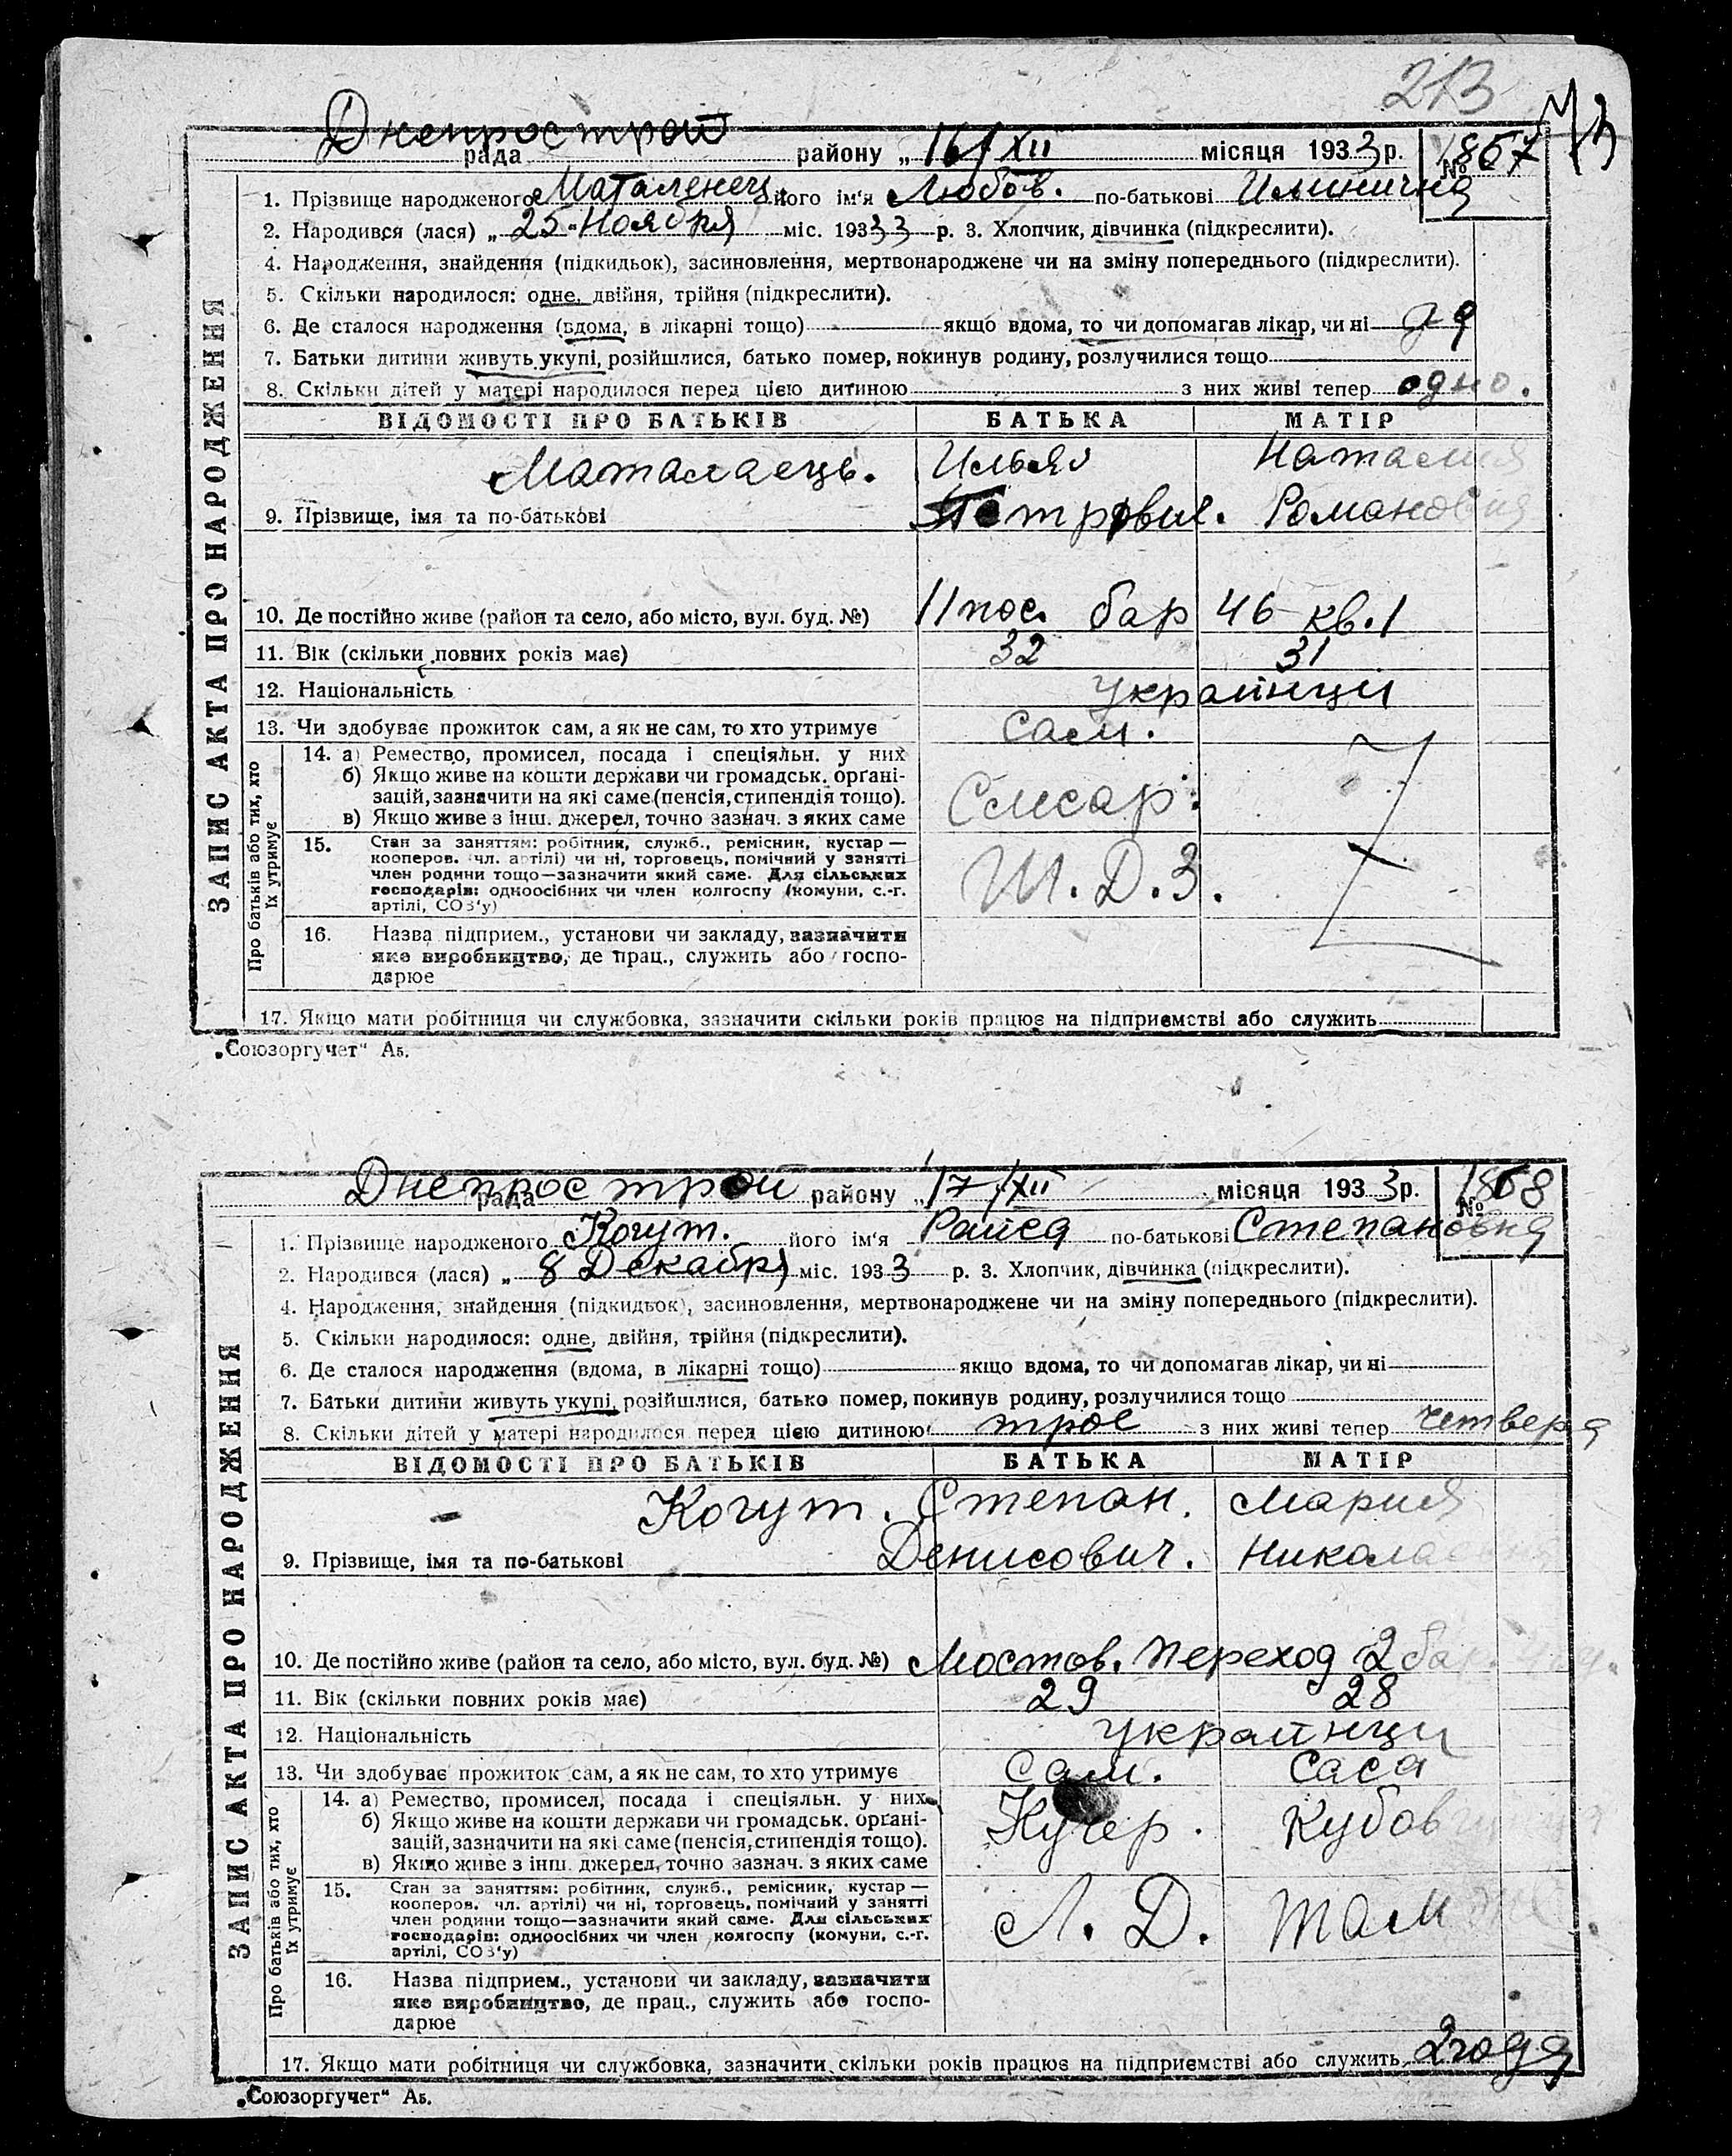 213
Днепрострой
рада району „ 16/XII місяця 1933 р. № 1867
1. Прізвище народженого Маталенец його ім'я Любов. по-батькові Илинична
2. Народився (лася) „ 25 Ноября міс. 193 33 р. 3. Хлопчик, дівчинка (підкреслити).
4. Народження, знайдення (підкидьок), засиновлення, мертвонароджене чи на зміну попереднього (підкреслити).
5. Скільки народилося: одне, двійня, трійня (підкреслити).
6. Де сталося народження (вдома, в лікарні тощо) якщо вдома, то чи допомагав лікар, чи ні да
7. Батьки дитини живуть укупі, розійшлися, батько помер, покинув родину, розлучилися тощо
8. Скільки дітей у матері народилося перед цією дитиною з них живі тепер одно.
ВІДОМОСТІ ПРО БАТЬКІВ БАТЬКА МАТІР
Маталаець. Илья Наталия
9. Прізвище, імя та по-батькові Петрович. Романовна
10. Де постійно живе (район та село, або місто, вул. буд. №) 11 пос. бар 46 кв. 1
11. Вік (скільки повних років має) 32 31
12. Національність украинци
13. Чи здобуває прожиток сам, а як не сам, то хто утримує сам.
14. а) Ремество, промисел, посада і спеціяльн. у них
б) Якщо живе на кошти держави чи громадськ. орґані-
зацій, зазначити на які саме (пенсія, стипендія тощо). Слесар.
в) Якщо живе з інш. джерел, точно зазнач. з яких саме
15. Стан за заняттям: робітник, служб., ремісник, кустар —
кооперов. чл. артілі) чи ні, торговець, помічний у занятті
член родини тощо—зазначити який саме. Для сільських Ш. Д. З.
господарів: одноосібних чи член колгоспу (комуни, с.-г.
артілі, СОЗ'у)
16. Назва підприєм., установи чи закладу, зазначити
яке виробництво, де прац., служить або госпо-
дарює
17. Якщо мати робітниця чи службовка, зазначити скільки років працює на підприємстві або служить
ЗАПИС АКТА ПРО НАРОДЖЕННЯ
Про батьків або тих, хто
їх утримує
„Союзоргучет" Аб.
Днепрострой
рада району „ 17/XII місяця 1933 р. № 1868
1. Прізвище народженого Когут. його ім'я Раиса по-батькові Степановна
2. Народився (лася) „ 8 Декабря міс. 1933 р. 3. Хлопчик, дівчинка (підкреслити).
4. Народження, знайдення (підкидьок), засиновлення, мертвонароджене чи на зміну попереднього (підкреслити).
5. Скільки народилося: одне, двійня, трійня (підкреслити).
6. Де сталося народження (вдома, в лікарні тощо) якщо вдома, то чи допомагав лікар, чи ні
7. Батьки дитини живуть укупі, розійшлися, батько помер, покинув родину, розлучилися тощо
8. Скільки дітей у матері народилося перед цією дитиною трое з них живі тепер четверо
ВІДОМОСТІ ПРО БАТЬКІВ БАТЬКА МАТІР
Когут. Степан. Мария
9. Прізвище, імя та по-батькові Денисович. Николаевна
10. Де постійно живе (район та село, або місто, вул. буд. №) Мостов. переход 2 бар.
11. Вік (скільки повних років має) 29 28
12. Національність украинци
13. Чи здобуває прожиток сам, а як не сам, то хто утримує сам. сама
14. а) Ремество, промисел, посада і спеціяльн. у них
б) Якщо живе на кошти держави чи громадськ. орґані- Кучер. Кубовщица
зацій, зазначити на які саме (пенсія, стипендія тощо).
в) Якщо живе з інш. джерел, точно зазнач. з яких саме
15. Стан за заняттям: робітник, служб., ремісник, кустар —
кооперов. чл. артілі) чи ні, торговець, помічний у занятті
член родини тощо—зазначити який саме. Для сільських Л. Д. там же
господарів: одноосібних чи член колгоспу (комуни, с.-г.
артілі, СОЗ'у)
16. Назва підприєм., установи чи закладу, зазначити
яке виробництво, де прац., служить або госпо-
дарює
17. Якщо мати робітниця чи службовка, зазначити скільки років працює на підприємстві або служить 2 года
ЗАПИС АКТА ПРО НАРОДЖЕННЯ
Про батьків або тих, хто
їх утримує
„Союзоргучет" Аб.